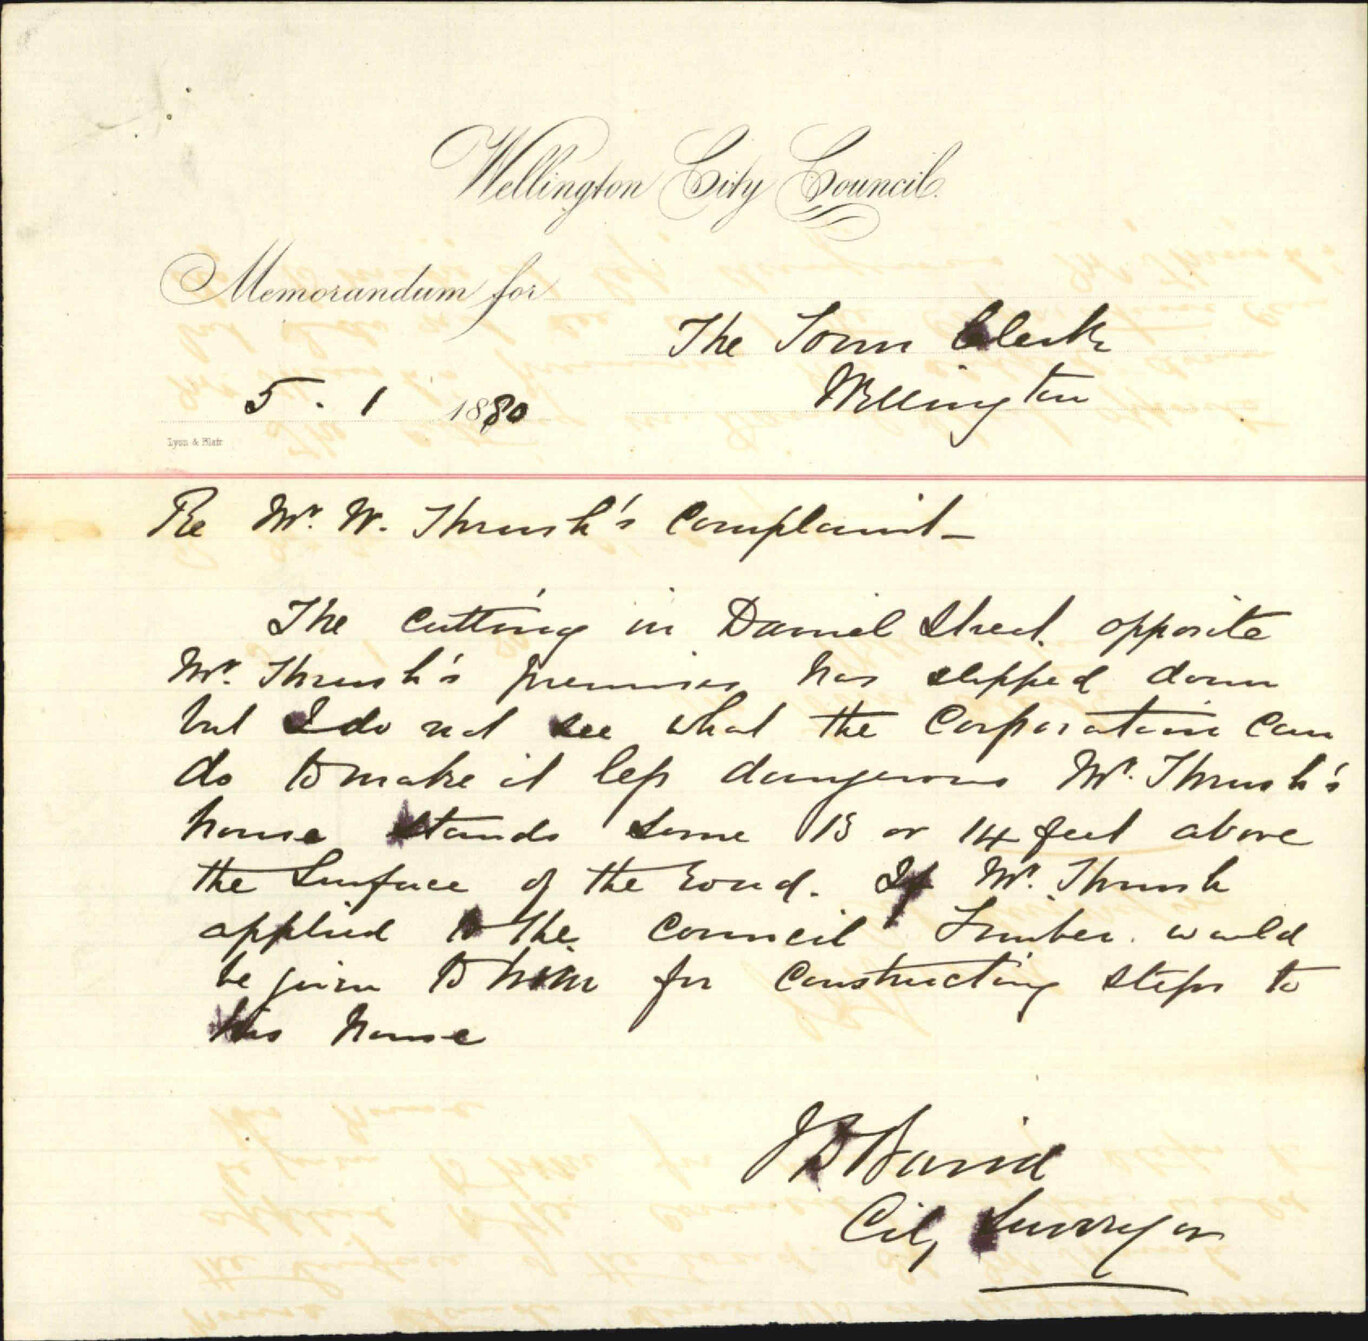 Wellington City Council.
Memorandum for
The Town Clerk
Wellington
5. 1 1880
Lyon & Blair
Re Mr. W. Thrush's Complaint -
The cutting in Daniel Street opposite
Mr. Thrush's premises has slipped down
but I do not see what the Corporation can
do to make it less dangerous Mr. Thrush's
house stands some 13 or 14 feet above
the surface of the road. If Mr. Thrush
applied to the Council Timber would
be given to him for constructing steps to
his house
J D Baird
City Surveyor